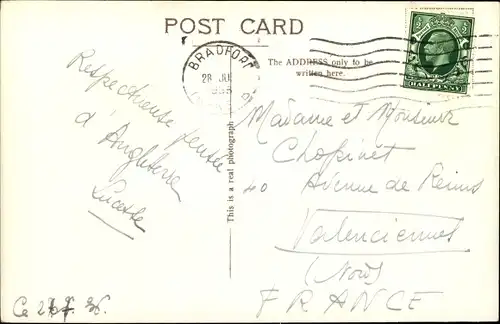 POST CARD
BRADFORD
28 JU
HALFPENNY
The ADDRESS only to be
written here.
Respectueuse pensée
d'Angleterre
Lucette
This is a real photograph
Madame et Monsieur
Chopinet
40 Avenue de Reims
Valenciennes
(Nord)
FRANCE
Ce